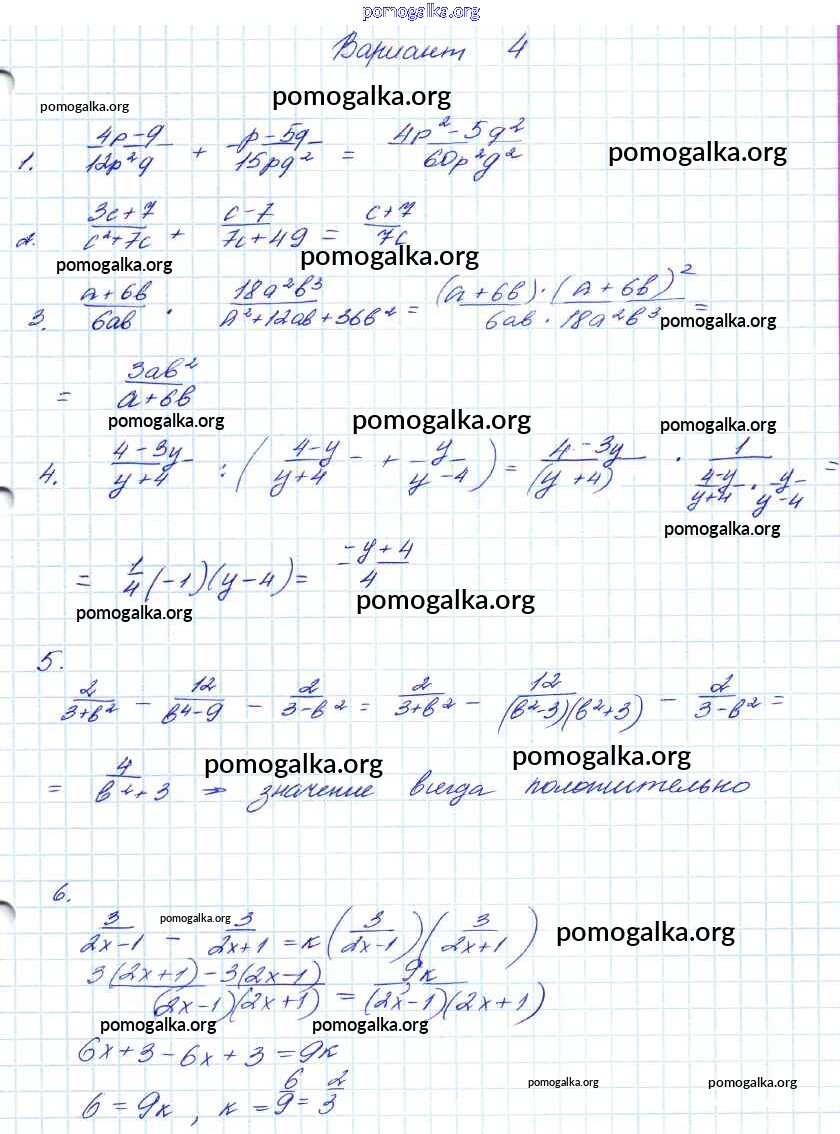 pomogalka.org
Вариант 4
pomogalka.org pomogalka.org
1. (4p-q)/(12p²q) + (p-5q)/(15pq²) = (4p²-5q²)/(60p²q²) pomogalka.org
2. (3c+7)/(c²+7c) + (c-7)/(7c+49) = (c+7)/(7c)
pomogalka.org pomogalka.org
3. (a+6b)/(6ab) · (18a²b³)/(a²+12ab+36b²) = ((a+6b)·(a+6b)²)/(6ab·18a²b³) = pomogalka.org
= (3ab²)/(a+6b)
pomogalka.org pomogalka.org pomogalka.org
4. (4-3y)/(y+4) : ((4-y)/(y+4) + y/(y-4)) = (4-3y)/(y+4) · 1/((4-y)/(y+4) · y/(y-4)) =
pomogalka.org
= 1/4 (-1)(y-4) = (-y+4)/4
pomogalka.org pomogalka.org
5.
2/(3+b²) - 12/(b⁴-9) - 2/(3-b²) = 2/(3+b²) - 12/((b²-3)(b²+3)) - 2/(3-b²) =
pomogalka.org pomogalka.org
= 4/(b²+3) ⇒ значение всегда положительно
6.
pomogalka.org
3/(2x-1) - 3/(2x+1) = к (3/(2x-1)) (3/(2x+1)) pomogalka.org
(3(2x+1)-3(2x-1))/((2x-1)(2x+1)) = 9к/((2x-1)(2x+1))
pomogalka.org pomogalka.org
6x+3-6x+3=9к
6=9к, к=6/9=2/3 pomogalka.org pomogalka.org